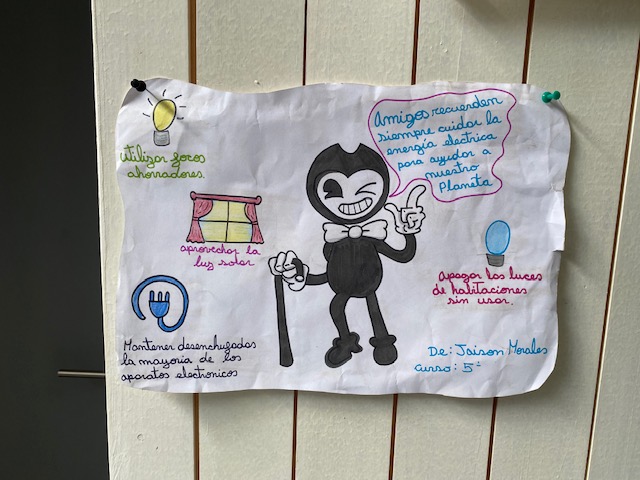 Amigos recuerden
siempre cuidar la
energía electrica
para ayudar a
nuestro
Planeta
utilizar focos
ahorradores.
aprovechar la
luz solar
apagar las luces
de habitaciones
sin usar.
Mantener desenchufados
la mayoria de los
aparatos electronicos
De: Jaison Morales
curso: 5º